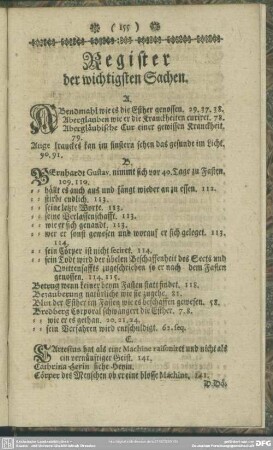 ( 155 )
Register
der wichtigsten Sachen.
A.
Abendmahl wie es die Esther genossen. 29. 37. 38.
Aberglauben wie er die Kranckheiten curiret. 78.
Abergläubische Cur einer gewissen Kranckheit.
79.
Auge kranckes kan im finstern sehen das gesunde im Licht.
90. 91.
B.
Bernhardt Gustav. nimmt sich vor 40. Tage zu Fasten.
109. 110.
‒ ‒ hält es auch aus und fängt wieder an zu essen. 112.
‒ ‒ stirbt endlich. 113.
‒ ‒ seine letzte Worte. 113.
‒ ‒ seine Verlassenschafft. 113.
‒ ‒ wie er sich genandt. 113.
‒ ‒ wer er sonst gewesen und worauf er sich geleget. 113.
114.
‒ ‒ sein Cörper ist nicht seciret. 114.
‒ ‒ sein Todt wird der übelen Beschaffenheit des Sects und
Quittensaffts zugeschrieben so er nach dem Fasten
genossen. 114. 115.
Betrug wenn keiner beym Fasten statt findet. 118.
Bezauberung natürliche wie sie zugehe. 81.
Blut der Esther im Fasten wie es beschaffen gewesen. 58.
Bredberg Corporal schwängert die Esther. 7. 8.
‒ ‒ wie er es gethan. 20. 21. 24.
‒ ‒ sein Verfahren wird entschuldigt. 62. seq.
C.
Cartesius hat als eine Machine raisoniret und nicht als
ein vernünftiger Geist. 141.
Catharina
Cörper des Menschen ob er eine blosse Machine. 141.